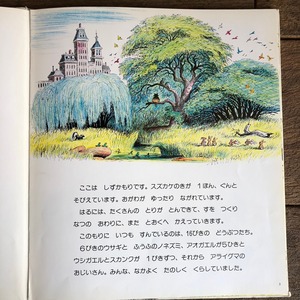 ここは しずかもりです。スズカケのきが 1ぽん、ぐんと
そびえています。おがわが ゆったり ながれています。
はるには、たくさんの とりが とんできて、すを つくり
なつの おわりに、また とおくへ かえっていきます。
このもりに いつも すんでいるのは、16ぴきの どうぶつたち。
6ぴきのウサギと ふうふのノネズミ、アオガエルが5ひきと
ウシガエルとスカンクが 1ぴきずつ、それから アライグマの
おじいさん。みんな、なかよく たのしく くらしていました。